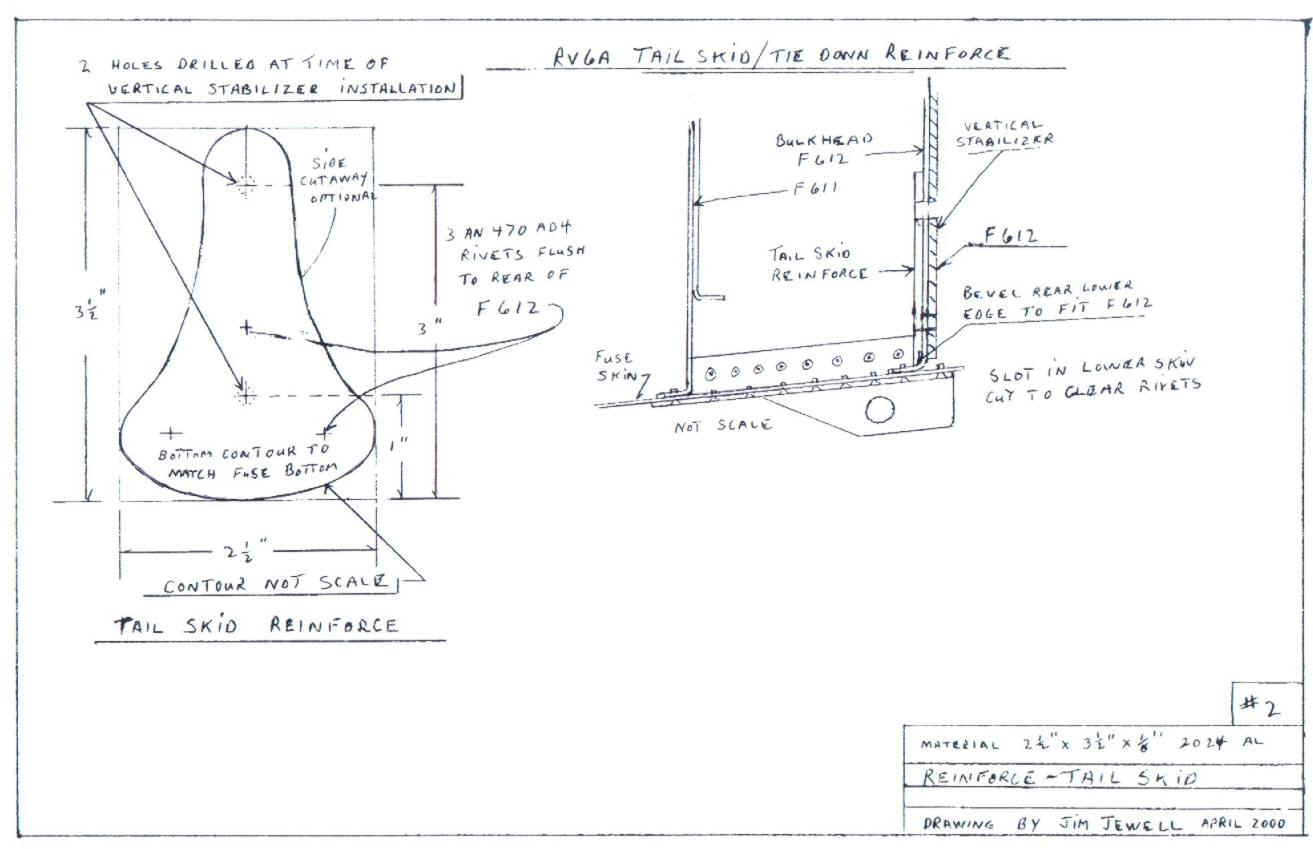 RV6A TAIL SKID/TIE DOWN REINFORCE
2 HOLES DRILLED AT TIME OF
VERTICAL STABILIZER INSTALLATION
SIDE
CUTAWAY
OPTIONAL
3 AN 470 AD4
RIVETS FLUSH
TO REAR OF
F612
3½"
3"
1"
BOTTOM CONTOUR TO
MATCH FUSE BOTTOM
2½"
CONTOUR NOT SCALE
TAIL SKID REINFORCE
BULKHEAD
F612
F611
VERTICAL
STABILIZER
F612
TAIL SKID
REINFORCE
BEVEL REAR LOWER
EDGE TO FIT F612
FUSE
SKIN
SLOT IN LOWER SKIN
CUT TO CLEAR RIVETS
NOT SCALE
#2
MATERIAL 2½" x 3½" x ⅛" 2024 AL
REINFORCE - TAIL SKID
DRAWING BY JIM JEWELL APRIL 2000